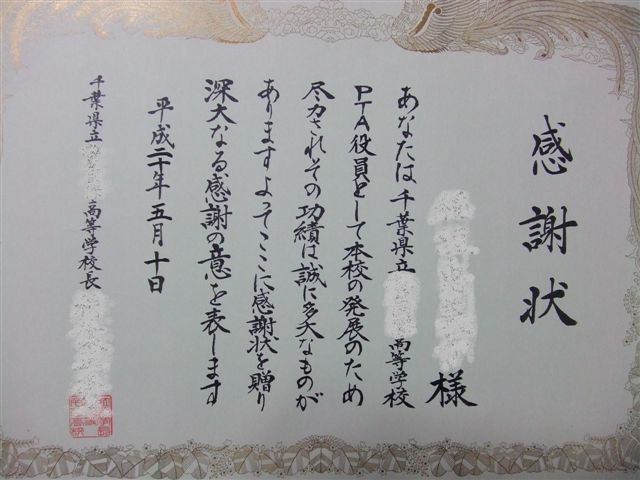 感謝状
様
あなたは千葉県立 高等学校
PTA役員として本校の発展のため
尽力されその功績は誠に多大なものが
ありますよってここに感謝状を贈り
深大なる感謝の意を表します
平成二十年五月十日
千葉県立 高等学校長